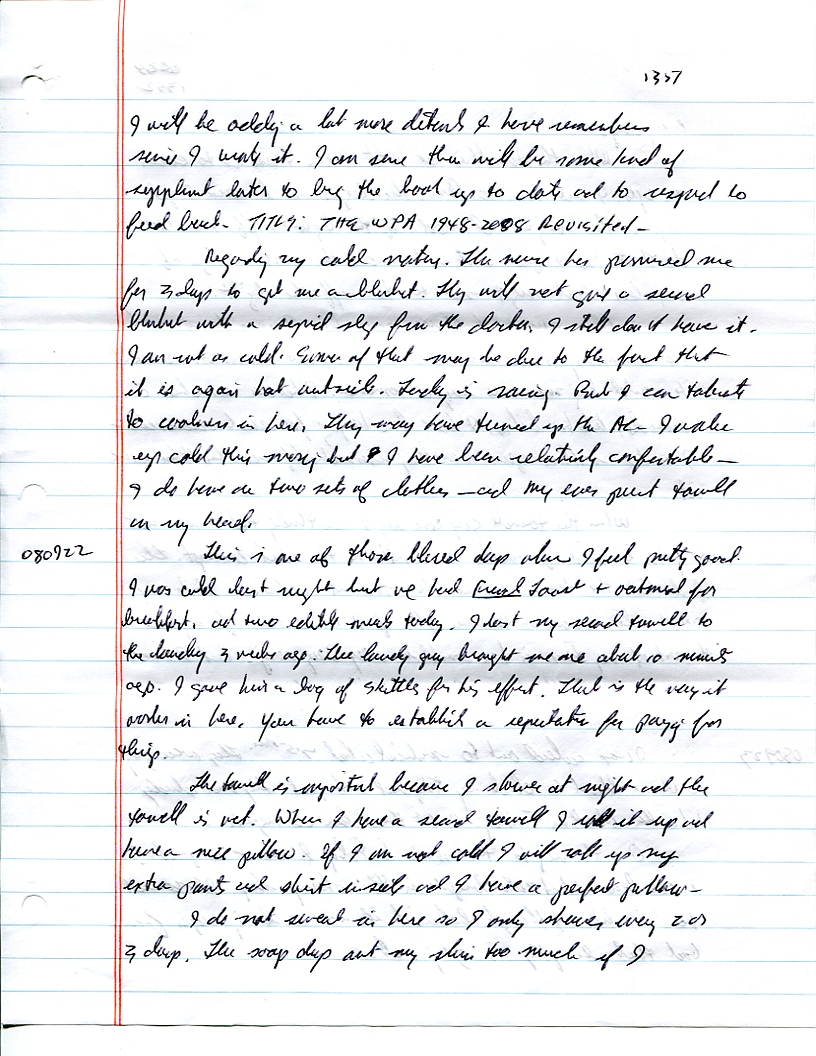 1337
I will be adding a lot more details I have remembers
since I wrote it. I am sure there will be some kind of
supplement later to bring the book up to date and to respond to
feed back. TITLE: THE WPA 1948-2008 Revisited-
Regarding my cold matter. The nurse has promised me
for 3 days to get me a blanket. They will not give a second
blanket with a signed slip from the doctor. I still don't have it.
I am not as cold. Some of that may be due to the fact that
it is again hot outside. Today is But I can tolerate
to coolness in here. They may have turned up the AC- I woke
up cold this morning but I have been relatively comfortable-
I do have on two sets of clothes -and my ever present towell
on my head.
080922
This is one of those blessed days when I feel pretty good.
I was cold last night but we had French Toast + oatmeal for
breakfast. and two edible meals today. I lost my second towell to
the laundry 3 weeks ago. The laundry guy brought me one about 10 minutes
ago. I gave him a bag of skittles for his effort. That is the way it
works in here, you have to establish a reputation for paying for
things.
The towell is important because I shower at night and the
towell is wet. When I have a second towell I roll it up and
have a nice pillow. If I am not cold I will roll up my
extra pants and shirt inside and I have a perfect pillow-
I do not sweat in here so I only shower every 2 or
3 days. The soap drys out my skin too much if I